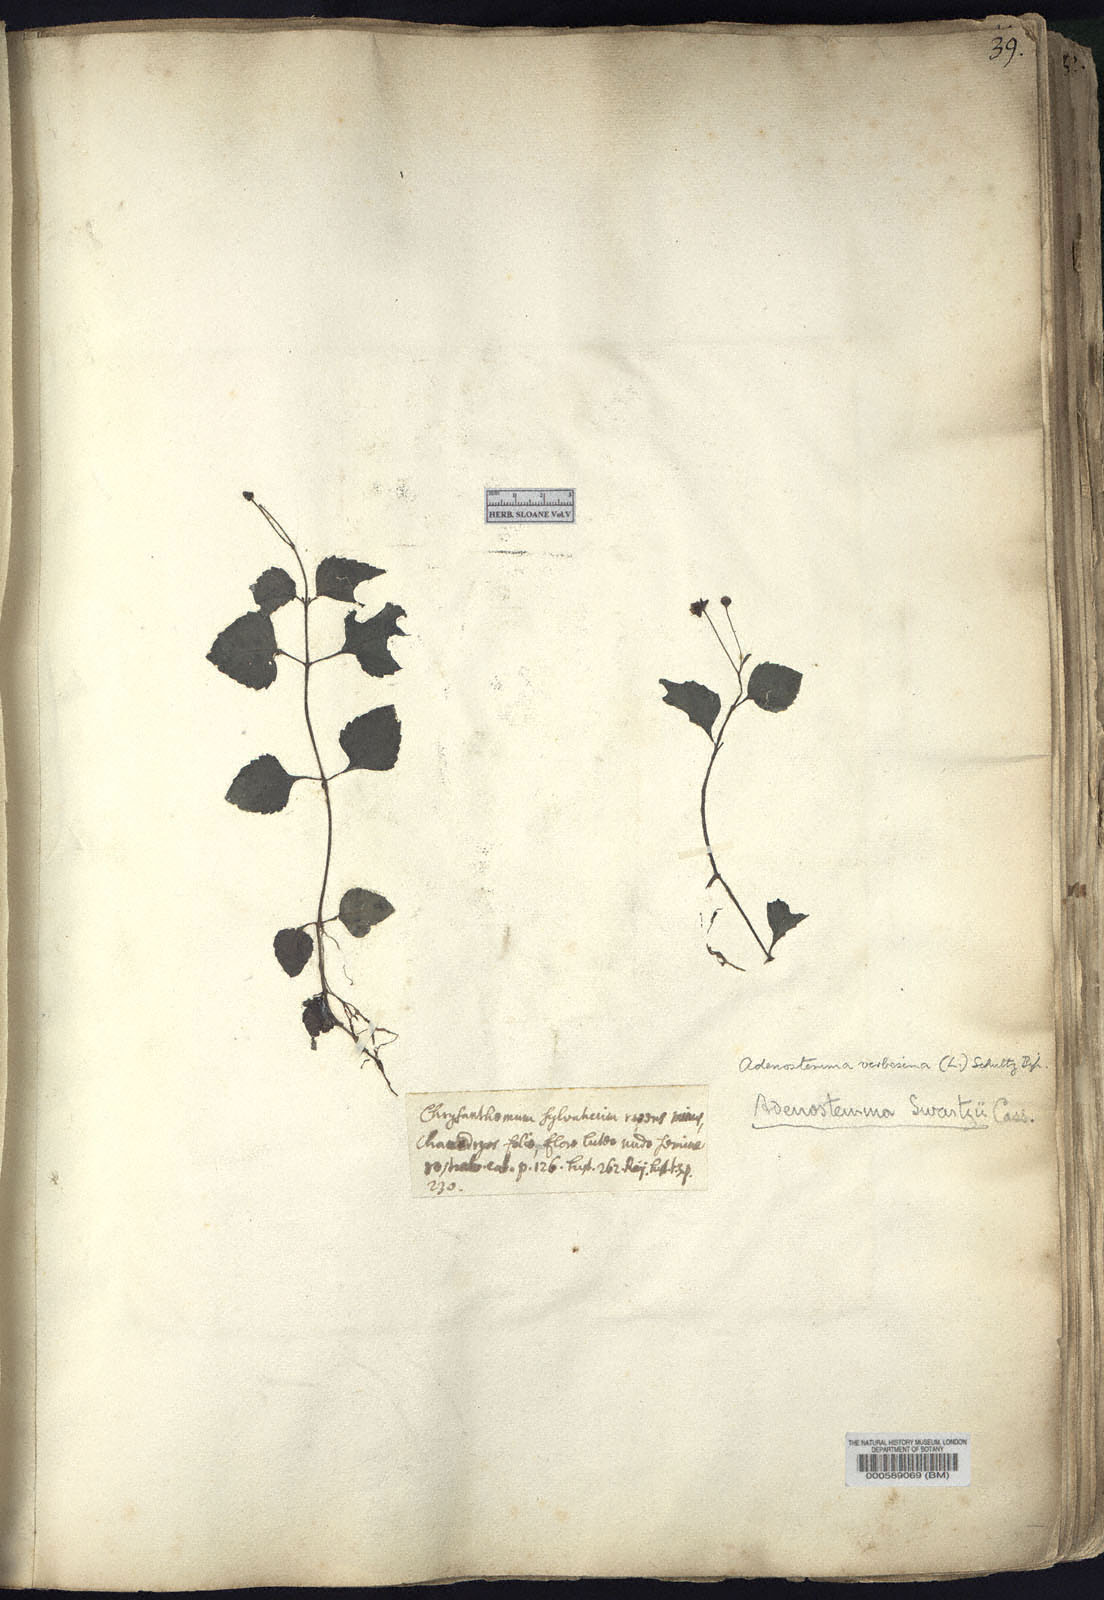 39.
HERB. SLOANE Vol.V
Adenostemma verbesina (L.) Schultz Bip.
Adenostemma Swartzii Cass.
Chrysanthemum sylvaticum repens minus,
chamaedryos folio, flore luteo nudo semine
rostrato cat. p. 126. hist. 262. Raij. hist. t. 3. p.
230.
THE NATURAL HISTORY MUSEUM, LONDON
DEPARTMENT OF BOTANY
000589069 (BM)